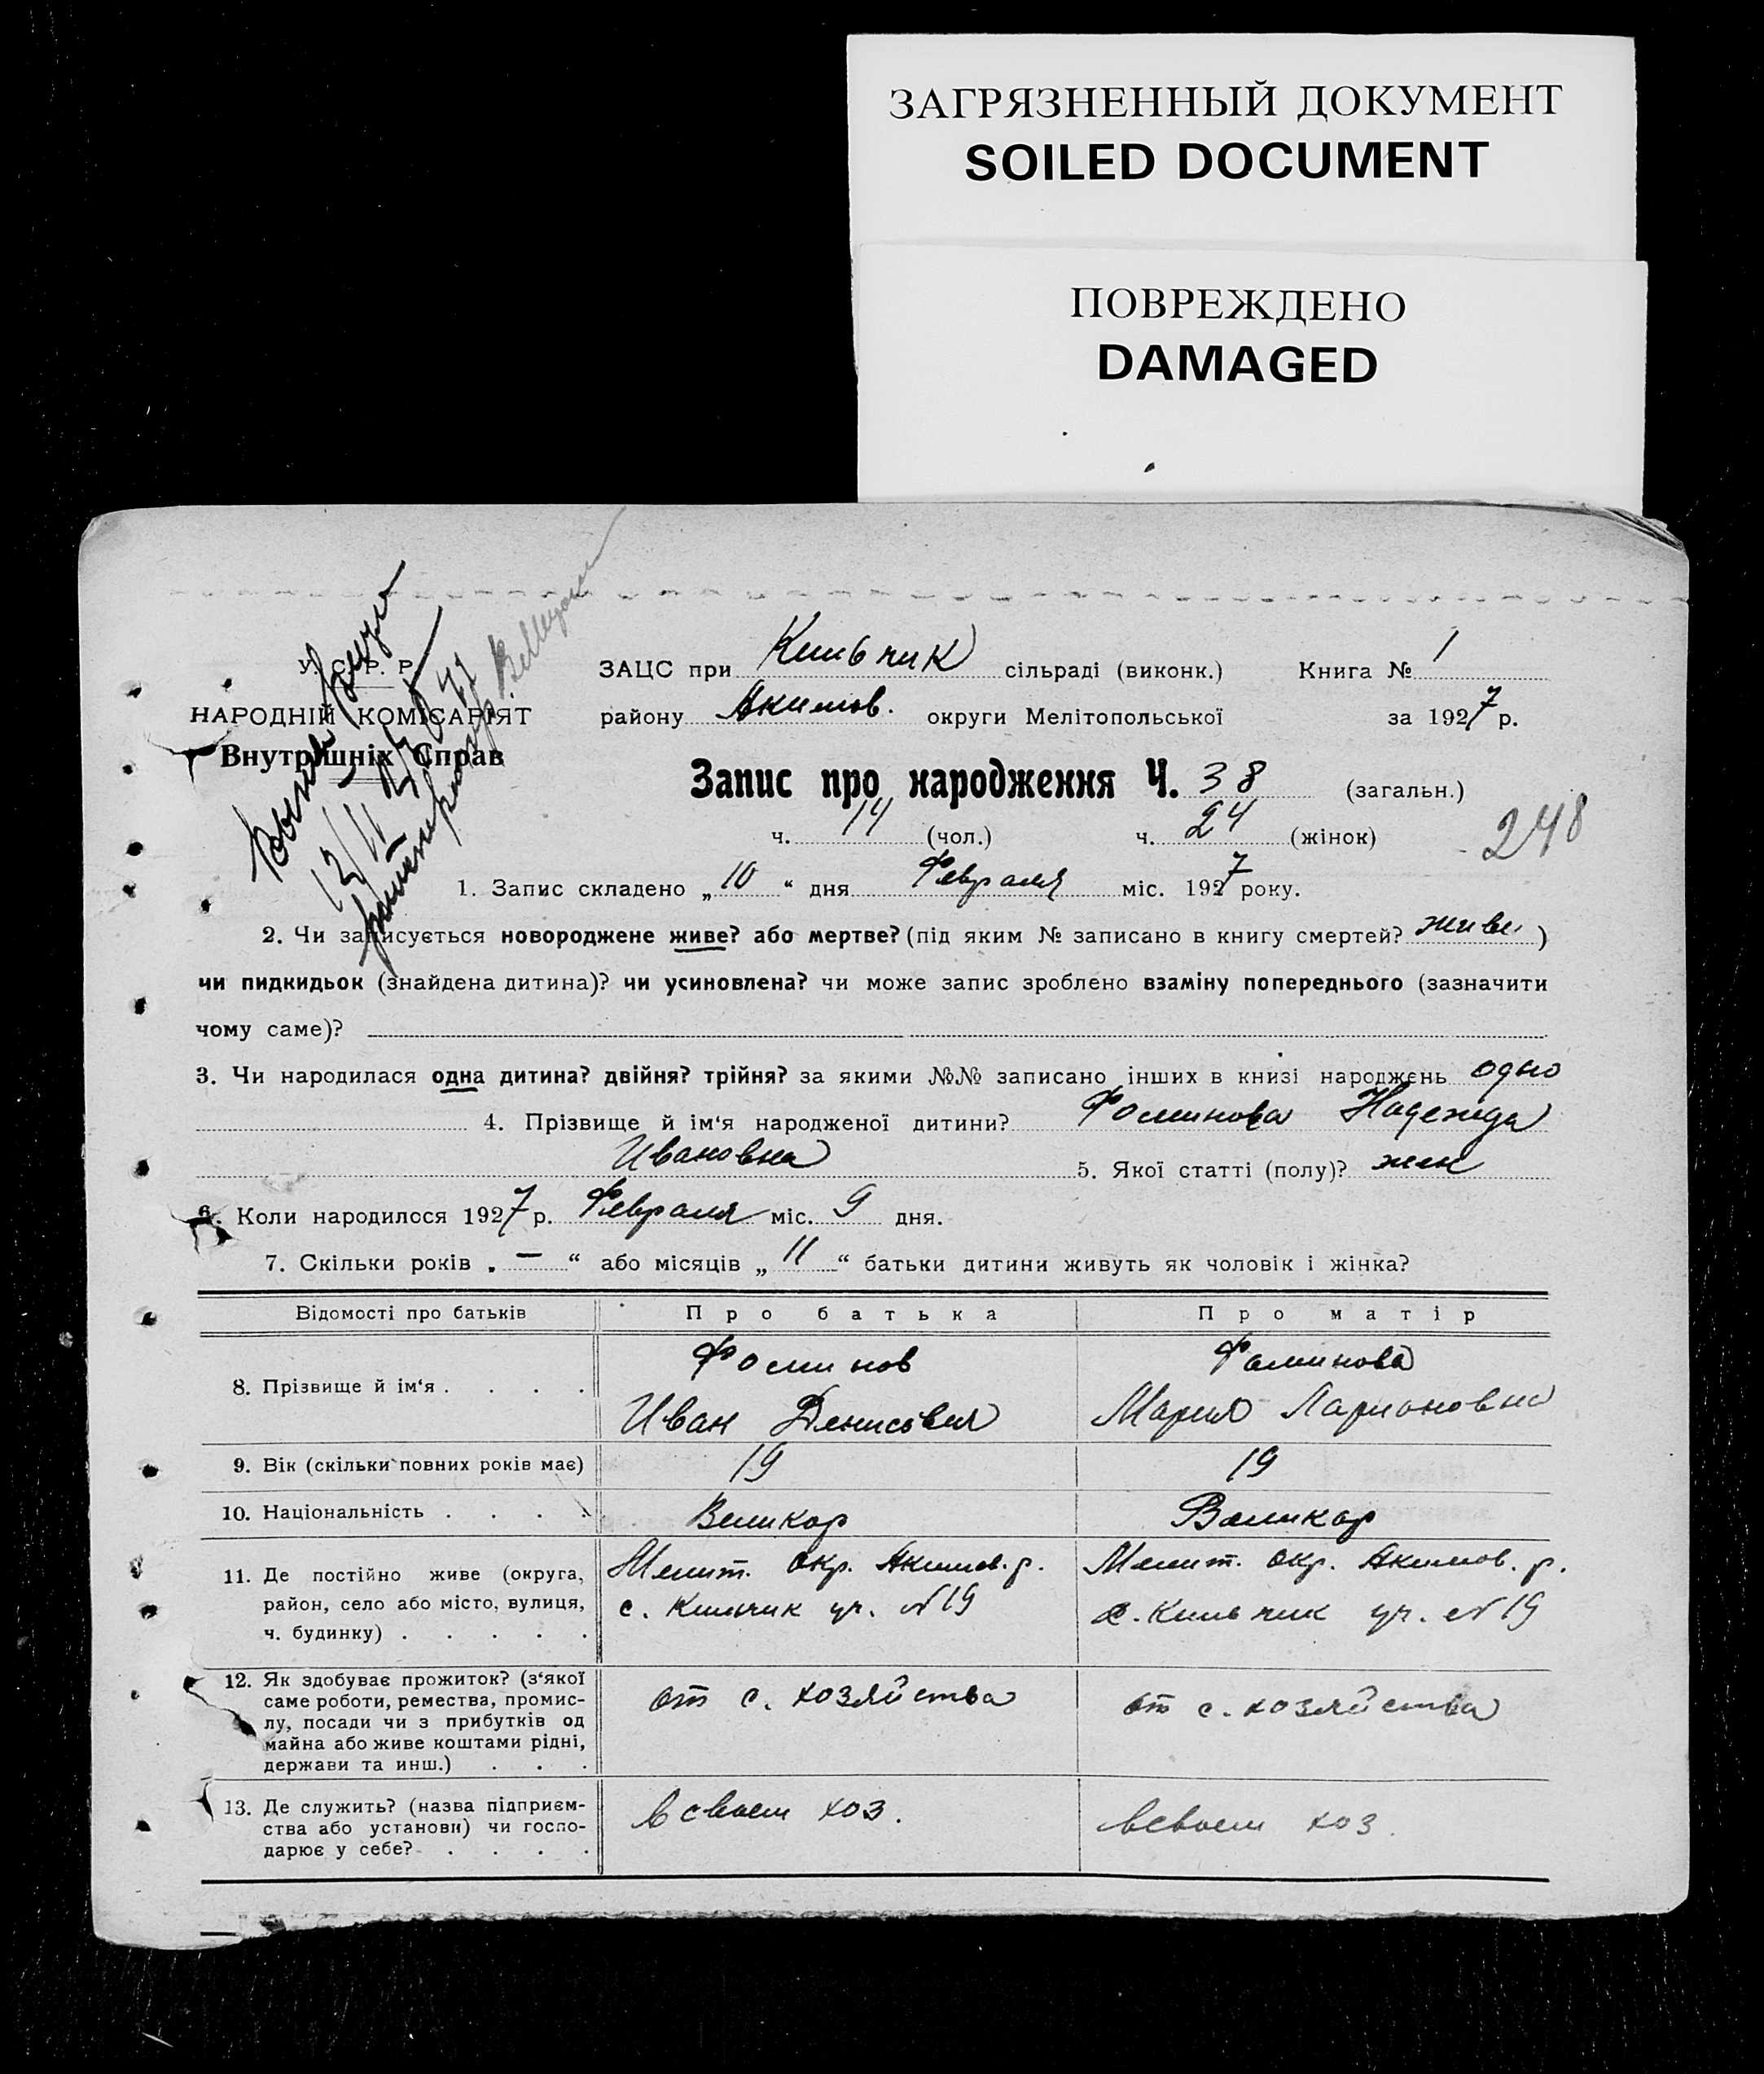 ЗАГРЯЗНЕННЫЙ ДОКУМЕНТ
SOILED DOCUMENT
ПОВРЕЖДЕНО
DAMAGED
У. С. Р. Р.
НАРОДНІЙ КОМІСАРІЯТ
Внутрішніх Справ
ЗАЦС при Кильчик сільраді (виконк.) Книга № 1
району Акимов. округи Мелітопольської за 1927 р.
Запис про народження Ч. 38 (загальн.)
ч. 14 (чол.) ч. 24 (жінок)
248
1. Запис складено „10“ дня Февраля міс. 1927 року.
2. Чи записується новороджене живе? або мертве? (під яким № записано в книгу смертей? )
чи пидкидьок (знайдена дитина)? чи усиновлена? чи може запис зроблено взаміну попереднього (зазначити
чому саме)?
3. Чи народилася одна дитина? двійня? трійня? за якими №№ записано інших в книзі народжень одно
4. Прізвище й ім‘я народженої дитини? Фоминова Надежда
Ивановна 5. Якої статті (полу)? жен
6. Коли народилося 1927 р. Февраля міс. 9 дня.
7. Скільки років „—“ або місяців „11“ батьки дитини живуть як чоловік і жінка?
Відомості про батьків Про батька Про матір
8. Прізвище й ім‘я . . . . Фоминов Фоминова
Иван Денисович Мария Ларионовна
9. Вік (скільки повних років має) 19 19
10. Національність . . . . Великор Великор
11. Де постійно живе (округа, Мелит. окр. Акимов. р. Мелит. окр. Акимов. р.
район, село або місто, вулиця, с. Кильчик уч. №19 с. Кильчик уч. №19
ч. будинку) . . . . .
12. Як здобуває прожиток? (з‘якої
саме роботи, ремества, промис- от с. хозяйства от с. хозяйства
лу, посади чи з прибутків од
майна або живе коштами рідні,
держави та инш.) . . .
13. Де служить? (назва підприєм- в своем хоз. в своем хоз.
ства або установи) чи госпо-
дарює у себе? . . . .